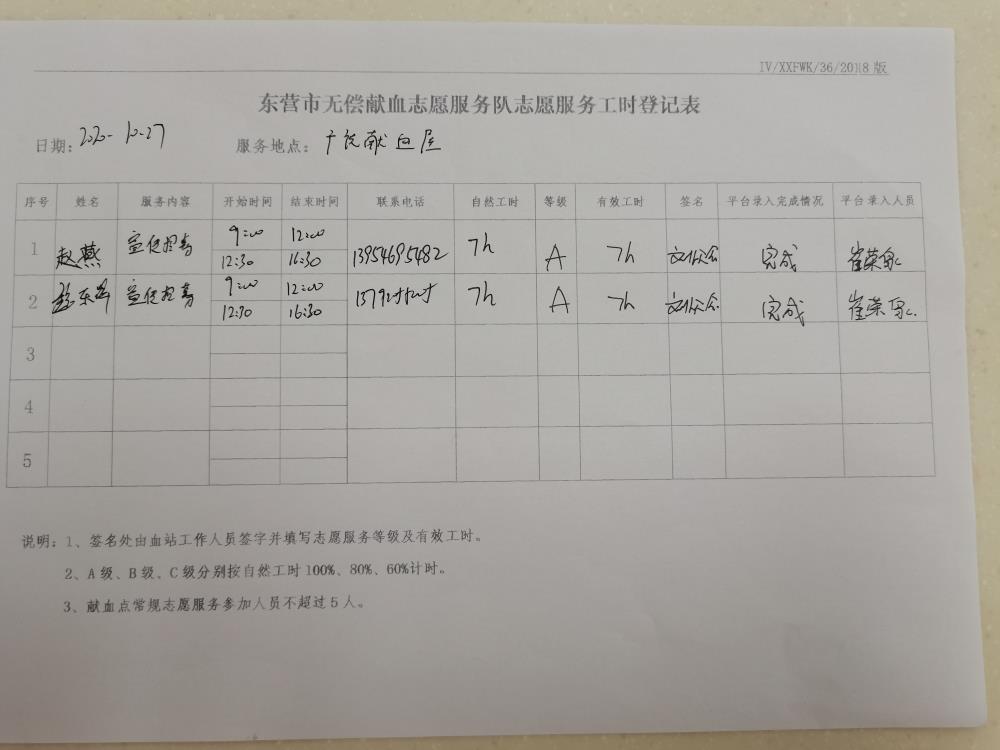 IV/XXFWK/36/2018版
东营市无偿献血志愿服务队志愿服务工时登记表
日期：2020-10-27 服务地点：广饶献血屋
序号 姓名 服务内容 开始时间 结束时间 联系电话 自然工时 等级 有效工时 签名 平台录入完成情况 平台录入人员
1 赵燕 宣传招募 9:00 12:00 13954695482 7h A 7h 完成
12:30 16:30
2 宣传招募 9:00 12:00 7h A 7h 完成
12:30 16:30
3
4
5
说明：1、签名处由血站工作人员签字并填写志愿服务等级及有效工时。
2、A级、B级、C级分别按自然工时100%、80%、60%计时。
3、献血点常规志愿服务参加人员不超过5人。